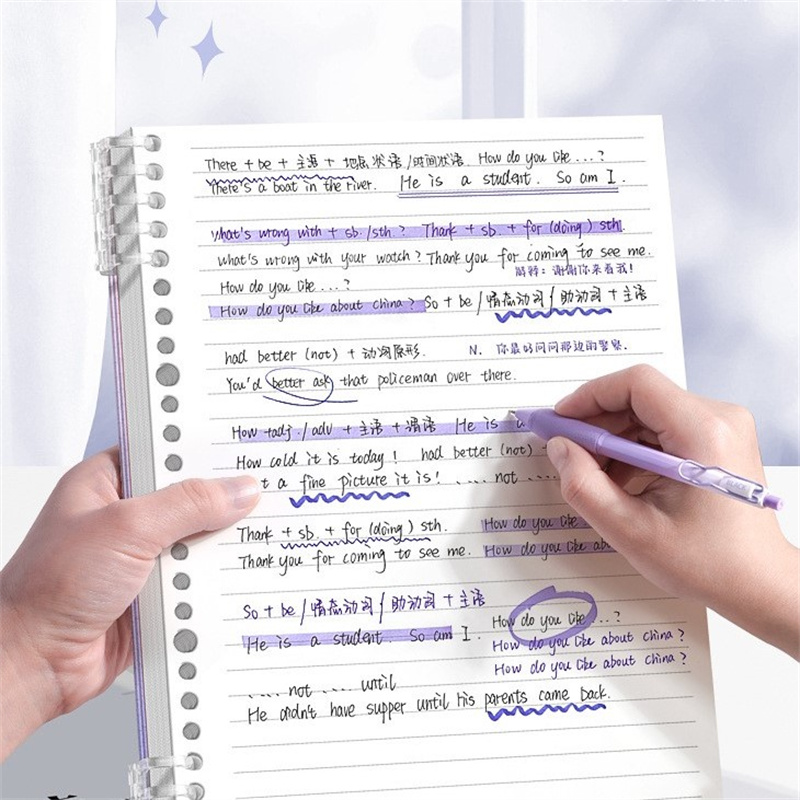 There + be + 主语 + 地点状语 / 时间状语. How do you like ...?
There's a boat in the river. He is a student. So am I.
what's wrong with + sb./sth.? Thank + sb. + for (doing) sth.
what's wrong with your watch? Thank you for coming to see me.
解释：谢谢你来看我！
How do you like ...?
How do you like about china? So + be / 情态动词 / 助动词 + 主语
had better (not) + 动词原形. N. 你最好问问那边的警察.
You'd better ask that policeman over there.
How +adj./adv + 主语 + 谓语 He is a
How cold it is today! had better (not) +
t a fine picture it is! .... not ....
Thank + sb. + for (doing) sth. How do you like
Thank you for coming to see me. How do you like abou
So + be / 情态动词 / 助动词 + 主语
How do you like ...?
He is a student. So am I. How do you like about china?
How do you like about china?
.... not .... until
He didn't have supper until his parents came back.